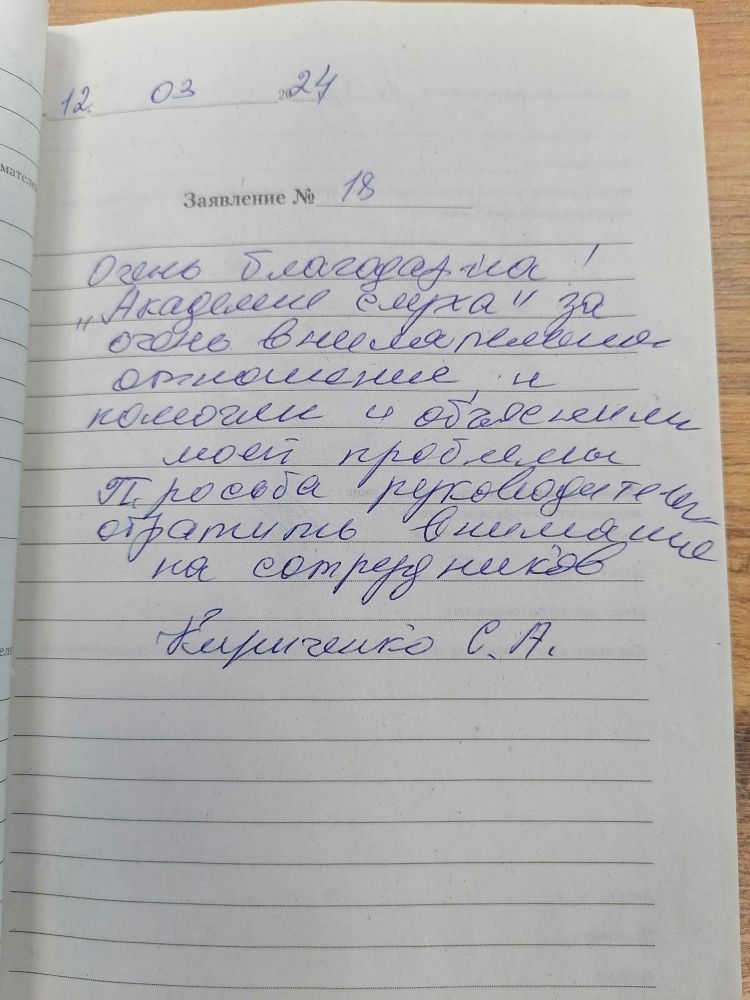 12. 03 2024
Заявление № 18
Очень благодарна!
"Академие слуха" за
очень внимательное
отношение, и
помогли и объяснили
моей проблемы
Просьба руководителю
обратить внимание
на сотрудников
Кириченко С. А.